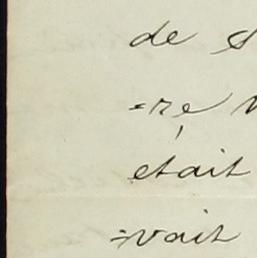 de
=re
était
=vait